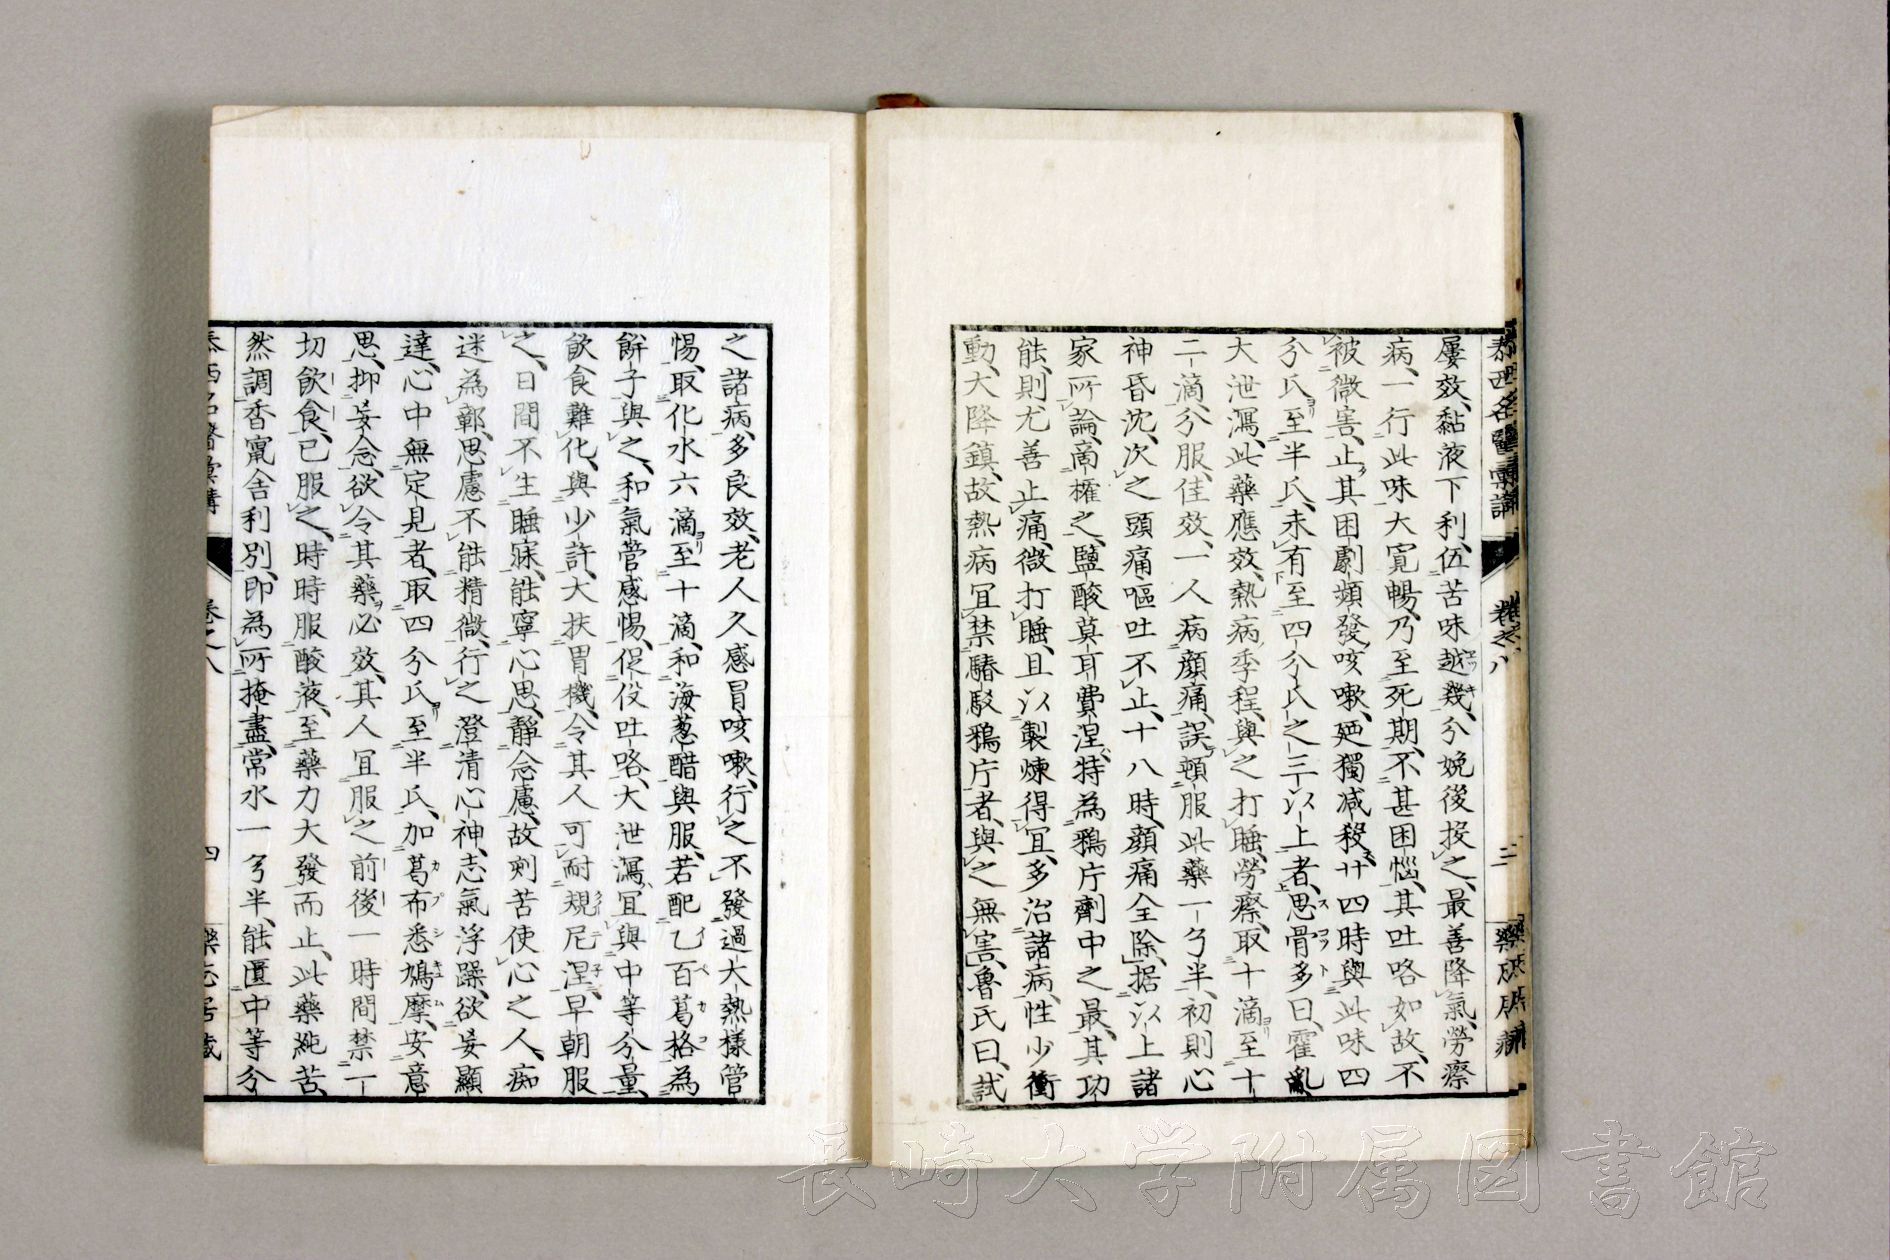 屢效、黏液下利、伍苦味越幾、分娩後投之、最善降氣、勞瘵
病、一行此味大寬暢、乃至死期、不甚困惱、其吐咯如故、不
被微害、止其困劇頻發咳嗽、廼獨減殺廿四時與此味四
分氏至半氏、未有至四分氏之三以上者、思骨多曰、霍亂
大泄瀉、此藥應效、熱病季程、與之打睡、勞瘵、取十滴至十
二滴、分服、佳效、一人病顔痛、誤頓服此藥一兮半、初則心
神昏沈、次之頭痛嘔吐不止、十八時、顔痛全除、据以上諸
家所論、商榷之、鹽酸莫耳費涅、特為鴉片劑中之最、其功
能、則尤善止痛、微打睡、且以製煉得宜、多治諸病、性少衝
動、大降鎮、故熱病宜禁騐駁鴉片者、與之無害、魯氏曰、試
之諸病、多良效、老人久感冒咳嗽、行之不發過大熱様管
惕、取化水六滴至十滴、和海葱醋與服、若配乙百葛格為
餅子與之、和氣管感惕、促伇吐咯、大泄瀉、宜與中等分量、
飲食難化、與少許、大扶胃機、令其人可耐規尼涅、早朝服
之、日間不生睡寐、能寧心思、靜念慮、故剜苦使心之人、痴
迷為鄣、思慮不能精微、行之澄清心神、志氣浮躁、欲妄顯
達、心中無定見者、取四分氏至半氏、加葛布悉鳩摩、安意
思、抑妄念、欲令其藥必效、其人宜服之前後一時間禁一
切飲食、已服之、時時服酸液、至藥力大發而止、此藥純苦、
然調香竄舎利別、即為所掩盡、常水一兮半、能匱中等分
泰西名醫彙講
卷之八
四